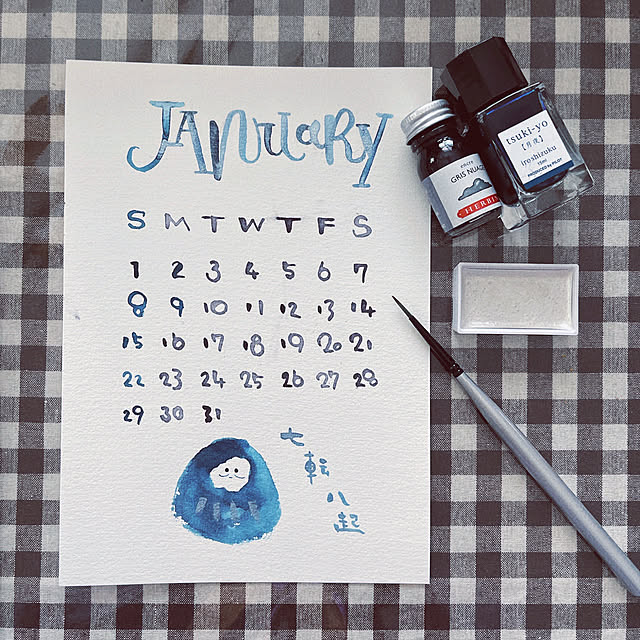 JANUARY
S M T W T F S
1 2 3 4 5 6 7
8 9 10 11 12 13 14
15 16 17 18 19 20 21
22 23 24 25 26 27 28
29 30 31
七転八起
GRIS NUAGE
HERBIN
tsuki-yo
【月夜】
iroshizuku
15ml
PRODUCED BY PILOT